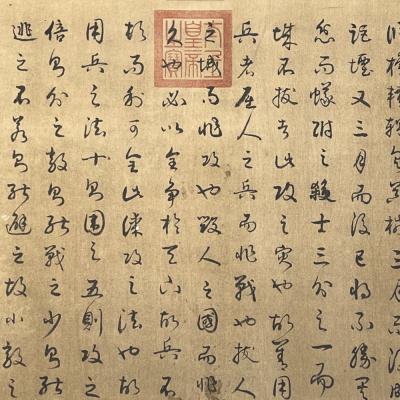 修櫓轒轀具器械三月而後成
距堙又三月而後已將不勝其
忿而蟻附之殺士三分之一而
城不拔者此攻之災也故善用
兵者屈人之兵而非戰也拔人
之城而非攻也毀人之國而非
久也必以全爭於天下故兵不
頓而利可全此謀攻之法也故
用兵之法十則圍之五則攻之
倍則分之敵則能戰之少則能
逃之不若則能避之故小敵之